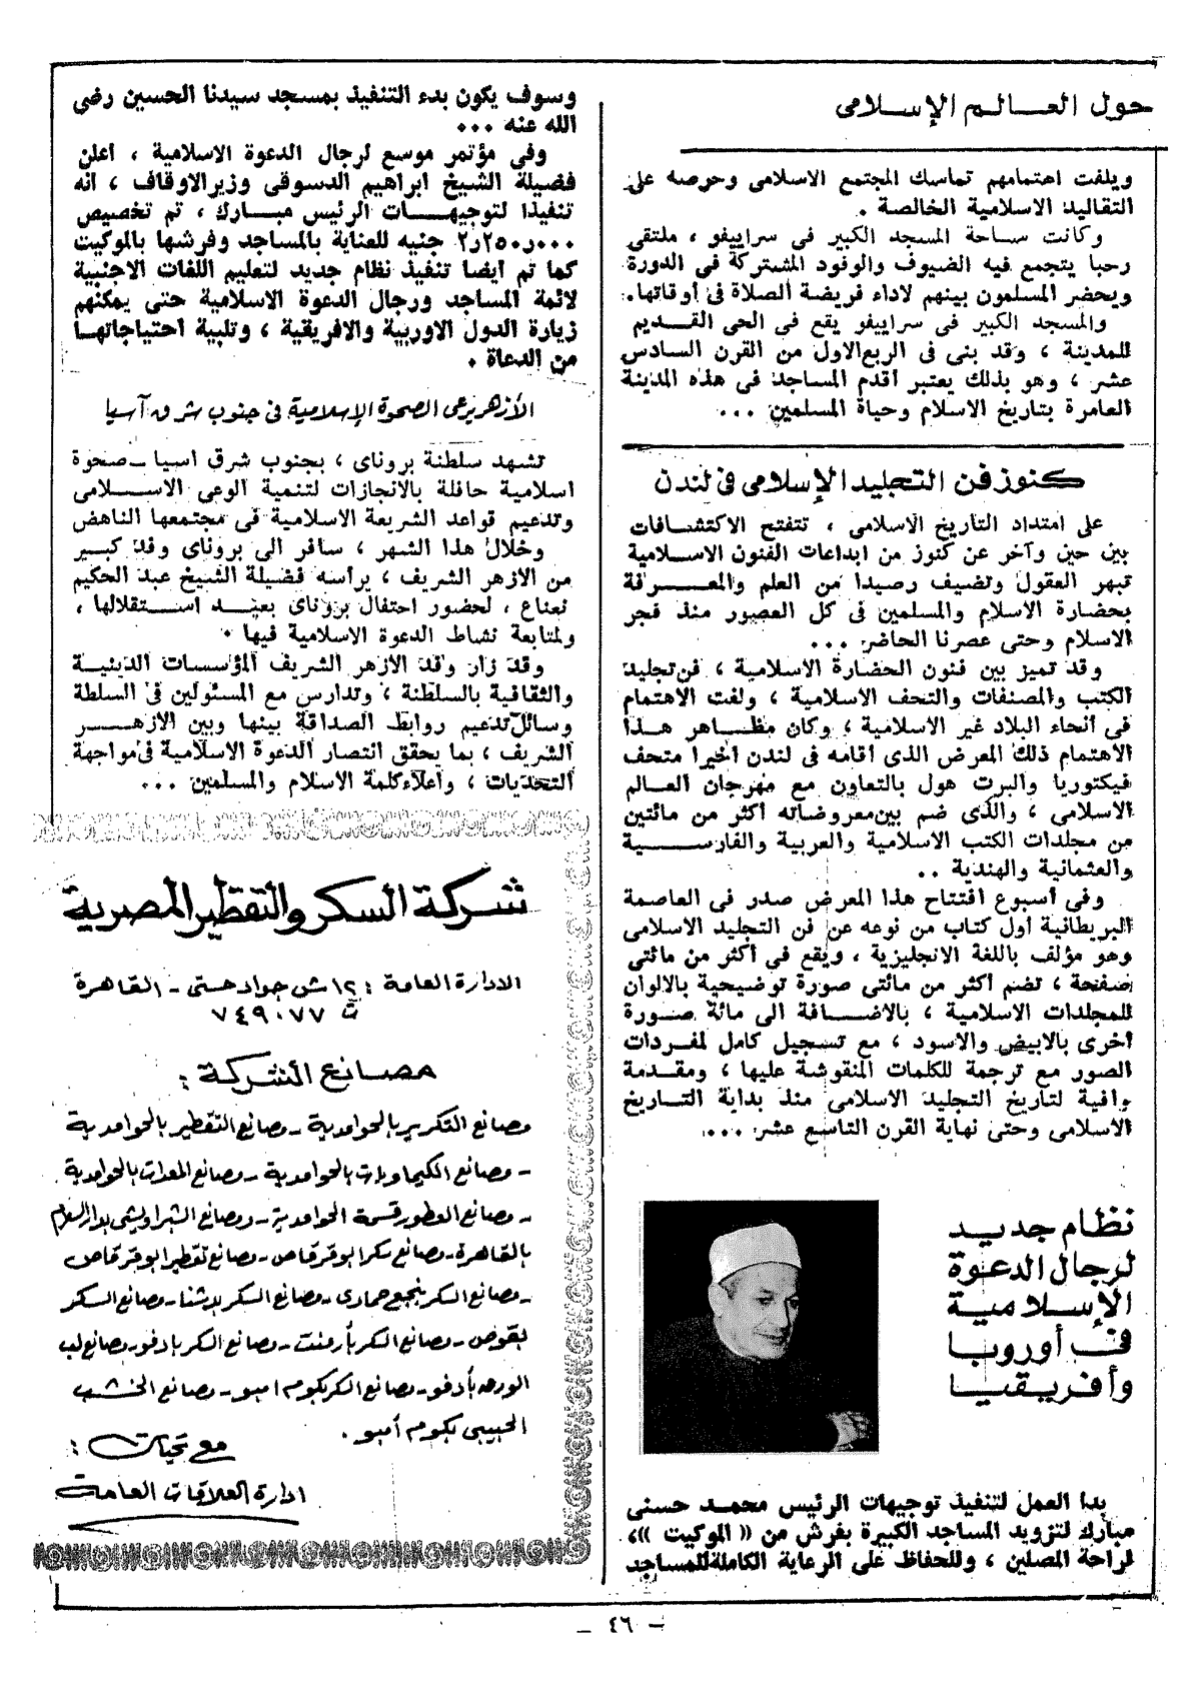 حول العالم الإسلامى
ويلفت اهتمامهم تماسك المجتمع الاسلامى وحرصه على
التقاليد الاسلامية الخالصة .
وكانت ساحة المسجد الكبير فى سراييفو ، ملتقى
رحبا يتجمع فيه الضيوف والوفود المشتركة فى الدورة
ويحضر المسلمون بينهم لاداء فريضة الصلاة فى أوقاتها.
والمسجد الكبير فى سراييفو يقع فى الحى القديم
للمدينة ، وقد بنى فى الربع الاول من القرن السادس
عشر ، وهو بذلك يعتبر أقدم المساجد فى هذه المدينة
العامرة بتاريخ الاسلام وحياة المسلمين ...
كنوز فن التجليد الإسلامى فى لندن
على امتداد التاريخ الاسلامى ، تتفتح الاكتشافات
بين حين وآخر عن كنوز من ابداعات الفنون الاسلامية
تبهر العقول وتضيف رصيدا من العلم والمعرفة
بحضارة الاسلام والمسلمين فى كل العصور منذ فجر
الاسلام وحتى عصرنا الحاضر ...
وقد تميز بين فنون الحضارة الاسلامية ، فن تجليد
الكتب والمصنفات والتحف الاسلامية ، ولفت الاهتمام
فى أنحاء البلاد غير الاسلامية ، وكان مظاهر هذا
الاهتمام ذلك المعرض الذى أقامه فى لندن أخيرا متحف
فيكتوريا والبرت هول بالتعاون مع مهرجان العالم
الاسلامى ، والذى ضم بين معروضاته أكثر من مائتين
من مجلدات الكتب الاسلامية والعربية والفارسية
والعثمانية والهندية ..
وفى أسبوع افتتاح هذا المعرض صدر فى العاصمة
البريطانية أول كتاب من نوعه عن فن التجليد الاسلامى
وهو مؤلف باللغة الانجليزية ، ويقع فى أكثر من مائتى
صفحة ، تضم أكثر من مائتى صورة توضيحية بالالوان
للمجلدات الاسلامية ، بالاضافة الى مائة صورة
أخرى بالابيض والاسود ، مع تسجيل كامل لمفردات
الصور مع ترجمة للكلمات المنقوشة عليها ، ومقدمة
وافية لتاريخ التجليد الاسلامى منذ بداية التاريخ
الاسلامى وحتى نهاية القرن التاسع عشر ...
نظام جديد
لرجال الدعوة
الإسلامية
فى أوروبا
وأفريقيا
بدا العمل لتنفيذ توجيهات الرئيس محمد حسنى
مبارك لتزويد المساجد الكبيرة بفرش من (( الموكيت )) ،
لراحة المصلين ، وللحفاظ على الرعاية الكاملة للمساجد
وسوف يكون بدء التنفيذ بمسجد سيدنا الحسين رضى
الله عنه ...
وفى مؤتمر موسع لرجال الدعوة الاسلامية ، أعلن
فضيلة الشيخ ابراهيم الدسوقى وزير الاوقاف ، أنه
تنفيذا لتوجيهات الرئيس مبارك ، تم تخصيص
٢٫٢٥٠٫٠٠٠ جنيه للعناية بالمساجد وفرشها بالموكيت
كما تم أيضا تنفيذ نظام جديد لتعليم اللغات الاجنبية
لائمة المساجد ورجال الدعوة الاسلامية حتى يمكنهم
زيارة الدول الاوربية والافريقية ، وتلبية احتياجاتها
من الدعاة .
الأزهر يرعى الصحوة الإسلامية فى جنوب شرق آسيا
تشهد سلطنة بروناى ، بجنوب شرق اسيا ـ صحوة
اسلامية حافلة بالانجازات لتنمية الوعى الاسلامى
وتدعيم قواعد الشريعة الاسلامية فى مجتمعها الناهض
وخلال هذا الشهر ، سافر الى بروناى وفد كبير
من الازهر الشريف ، يرأسه فضيلة الشيخ عبد الحكيم
نعناع ، لحضور احتفال بروناى بعيد استقلالها ،
ولمتابعة نشاط الدعوة الاسلامية فيها .
وقد زار وفد الازهر الشريف المؤسسات الدينية
والثقافية بالسلطنة ، وتدارس مع المسئولين فى السلطة
وسائل تدعيم روابط الصداقة بينها وبين الازهر
الشريف ، بما يحقق انتصار الدعوة الاسلامية فى مواجهة
التحديات ، واعلاء كلمة الاسلام والمسلمين ...
شركة السكر والتقطير المصرية
الادارة العامة : ١٢ ش جواد حسنى - القاهرة
ت ٧٤٩٠٧٧
مصانع الشركة :
مصانع التكرير بالحوامدية - مصانع التقطير بالحوامدية
- مصانع الكيماويات بالحوامدية - مصانع المعدات بالحوامدية
- مصانع العطور قسمة الحوامدية - ومصانع الشبراويشى بدار السلام
بالقاهرة - مصانع سكر ابو قرقاص - مصانع تقطير ابو قرقاص
- مصانع السكر بنجع حمادى - مصانع السكر بدشنا - مصانع السكر
بقوص - مصانع السكر بأرمنت - مصانع السكر بادفو - مصانع لب
الورق بأدفو - مصانع السكر بكوم امبو - مصانع الخشب
الحبيبى بكوم أمبو .
مع تحيات :
ادارة العلاقات العامة
- ٤٦ -